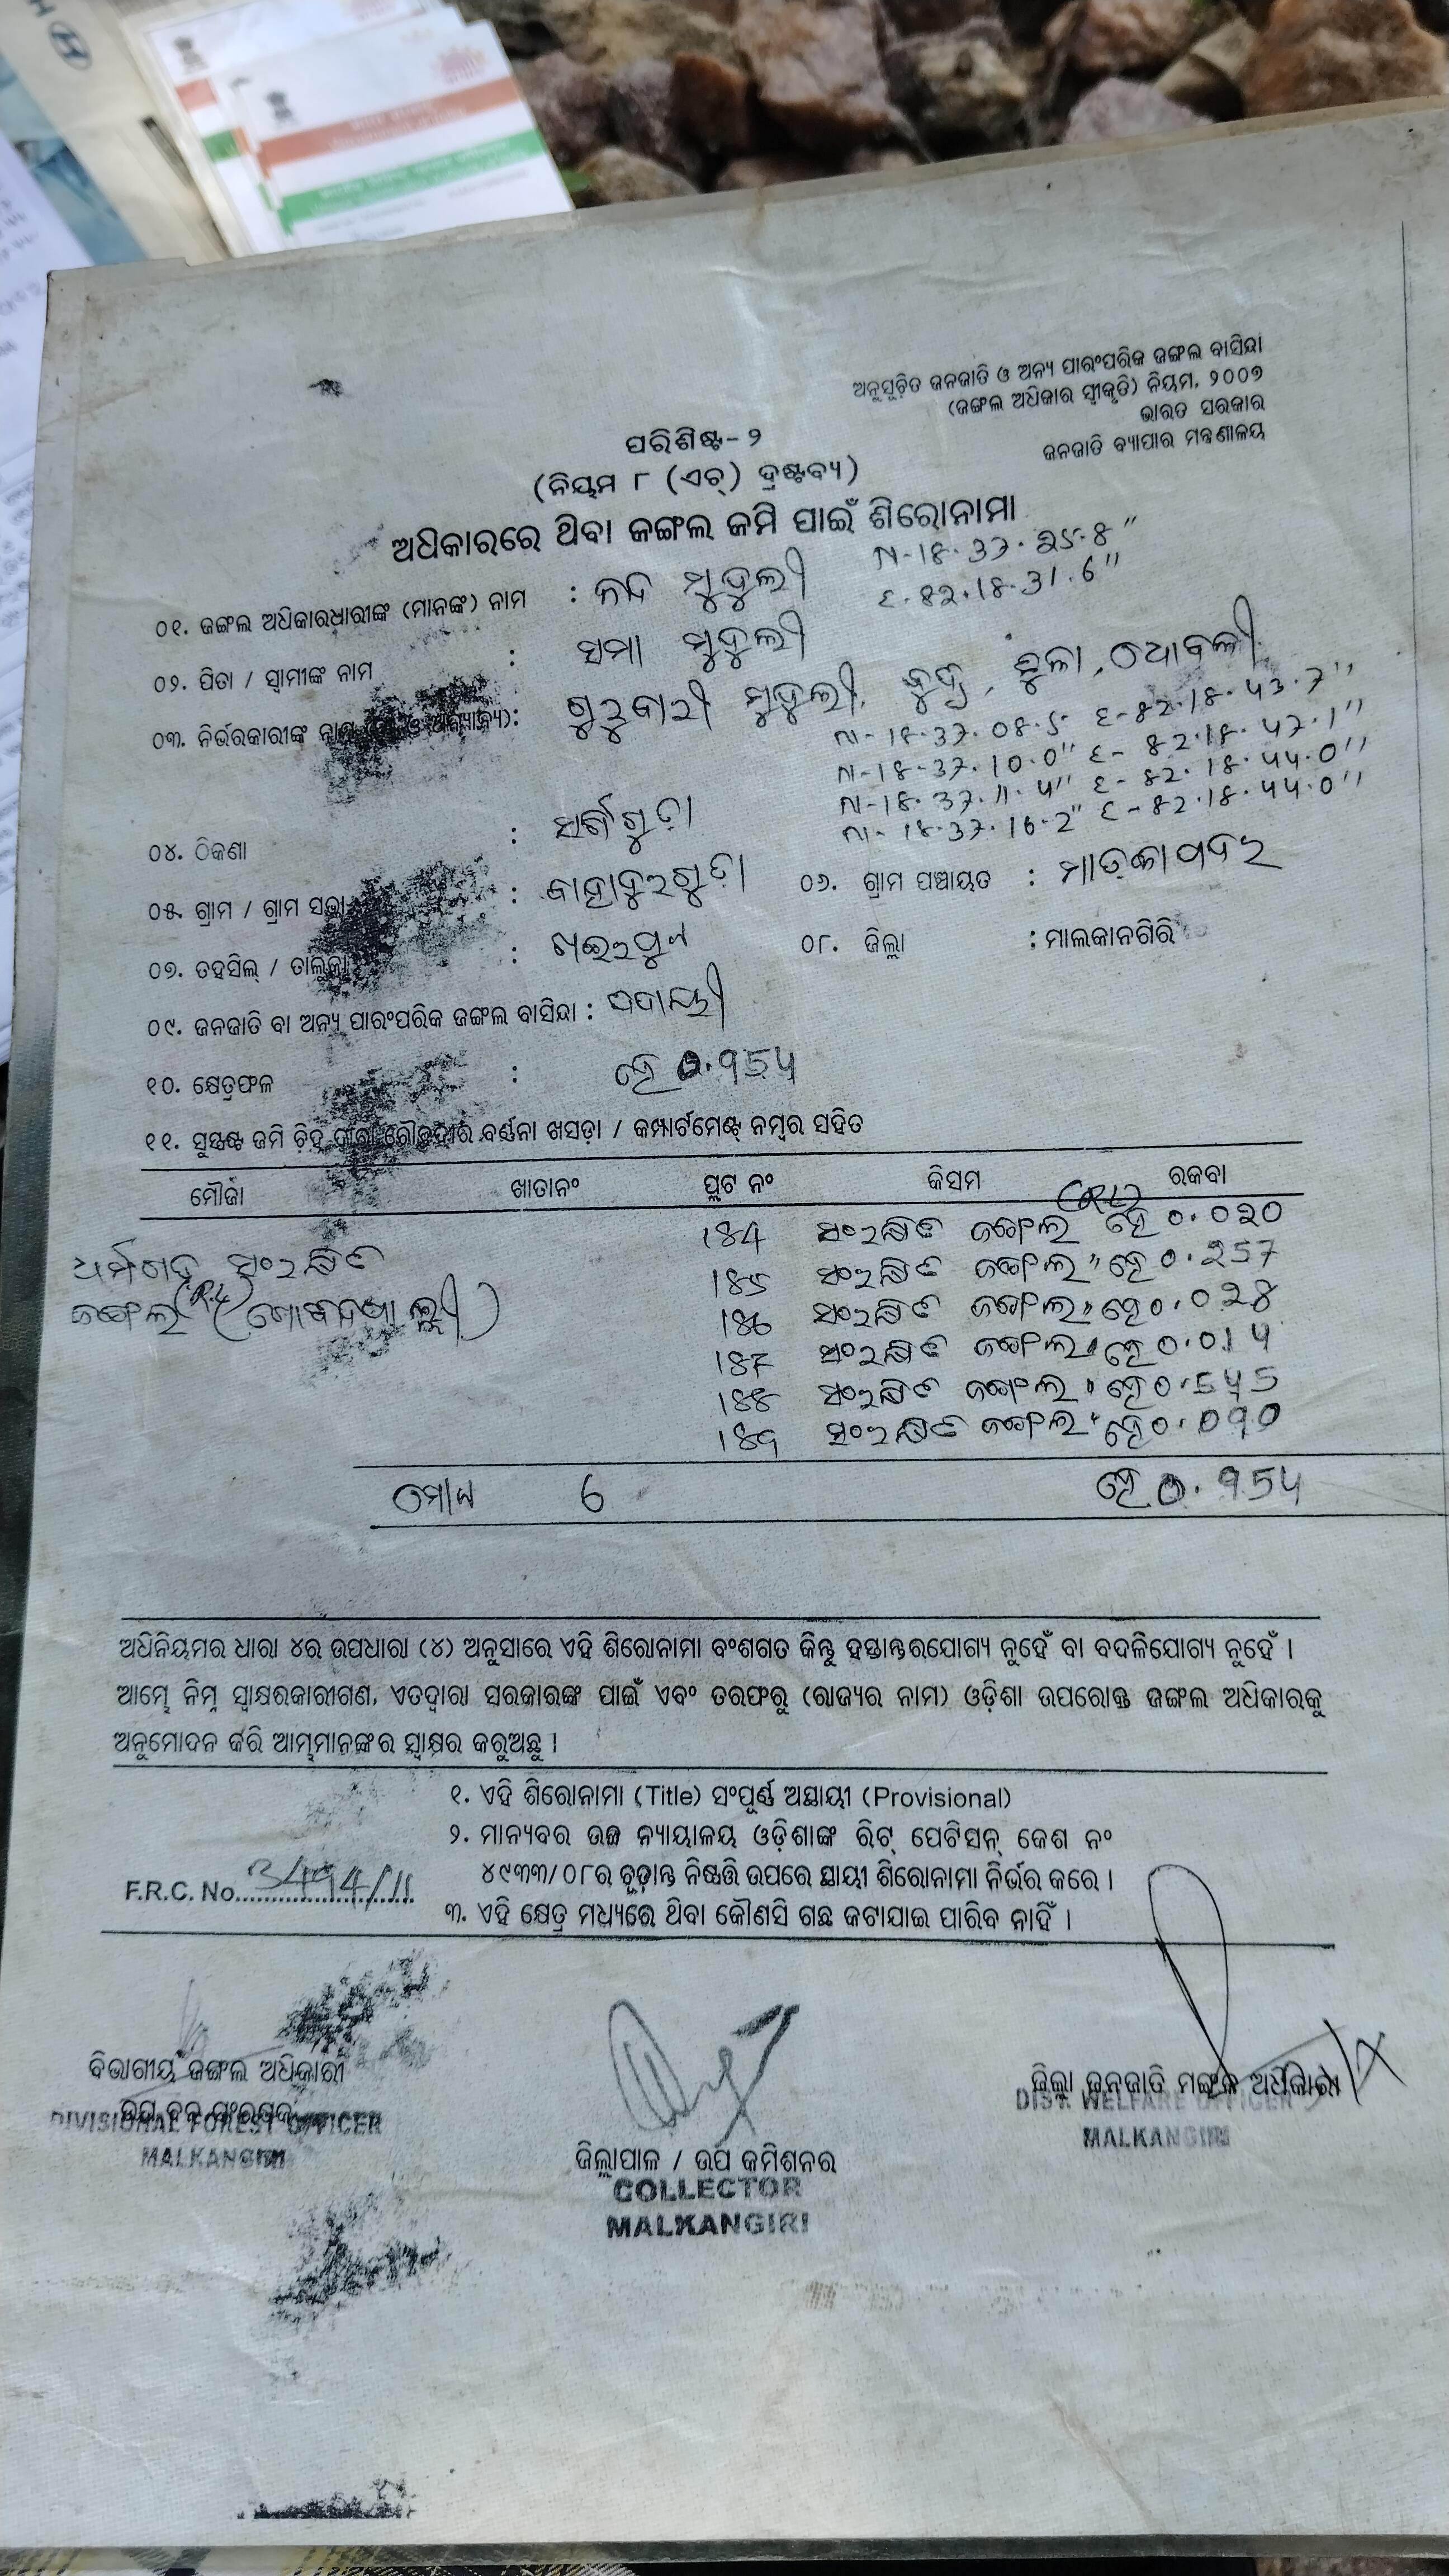 ଅନୁସୂଚିତ ଜନଜାତି ଓ ଅନ୍ୟ ପାରଂପରିକ ଜଙ୍ଗଲ ବାସିନ୍ଦା
(ଜଙ୍ଗଲ ଅଧିକାର ସ୍ୱୀକୃତି) ନିୟମ, ୨୦୦୭
ଭାରତ ସରକାର
ଜନଜାତି ବ୍ୟାପାର ମନ୍ତ୍ରଣାଳୟ
ପରିଶିଷ୍ଟ-୨
(ନିୟମ ୮ (ଏଚ୍) ଦ୍ରଷ୍ଟବ୍ୟ)
ଅଧିକାରରେ ଥିବା ଜଙ୍ଗଲ ଜମି ପାଇଁ ଶିରୋନାମା
N-18-37-25-8"
୦୧. ଜଙ୍ଗଲ ଅଧିକାରଧାରୀଙ୍କ (ମାନଙ୍କ) ନାମ : ମୁଦୁଲୀ E-82-18-31.6"
୦୨. ପିତା / ସ୍ୱାମୀଙ୍କ ନାମ : ସମା ମୁଦୁଲୀ
୦୩. ନିର୍ଭରକାରୀଙ୍କ : ଗୁରୁବାରୀ ମୁଦୁଲୀ,
N-18-37-08-5 E-82-18-43-7"
N-18-37-10-0" E-82-18-47-1"
N-18-37-11-4" E-82-18-44-0"
N-18-37-16-2" E-82-18-44-0"
୦୪. ଠିକଣା :
୦୫. ଗ୍ରାମ / ଗ୍ରାମ ସଭା : ବାହାଦୁରଗୁଡ଼ା ୦୬. ଗ୍ରାମ ପଞ୍ଚାୟତ :
୦୭. ତହସିଲ୍ / ତାଲୁକା : ଖଇରପୁଟ ୦୮. ଜିଲ୍ଲା : ମାଲକାନଗିରି
୦୯. ଜନଜାତି ବା ଅନ୍ୟ ପାରଂପରିକ ଜଙ୍ଗଲ ବାସିନ୍ଦା :
୧୦. କ୍ଷେତ୍ରଫଳ : ହେ 0.954
୧୧. ସୁସ୍ପଷ୍ଟ ଜମି ଚିହ୍ନ ବର୍ଣ୍ଣନା ଖସଡ଼ା / କମ୍ପାର୍ଟମେଣ୍ଟ୍ ନମ୍ବର ସହିତ
ମୌଜା ଖାତାନଂ ପ୍ଲଟ ନଂ କିସମ ରକବା
184 ସଂରକ୍ଷିତ ଜଙ୍ଗଲ ହେ 0.020
ଧର୍ମଗଡ଼ ସଂରକ୍ଷିତ 185 ସଂରକ୍ଷିତ ଜଙ୍ଗଲ " ହେ 0.257
ଜଙ୍ଗଲ 186 ସଂରକ୍ଷିତ ଜଙ୍ଗଲ " ହେ 0.028
187 ସଂରକ୍ଷିତ ଜଙ୍ଗଲ " ହେ 0.014
188 ସଂରକ୍ଷିତ ଜଙ୍ଗଲ " ହେ 0.545
189 ସଂରକ୍ଷିତ ଜଙ୍ଗଲ " ହେ 0.090
ମୋଟ 6 ହେ 0.954
ଅଧିନିୟମର ଧାରା ୪ର ଉପଧାରା (୪) ଅନୁସାରେ ଏହି ଶିରୋନାମା ବଂଶଗତ କିନ୍ତୁ ହସ୍ତାନ୍ତରଯୋଗ୍ୟ ନୁହେଁ ବା ବଦଳିଯୋଗ୍ୟ ନୁହେଁ ।
ଆମ୍ଭେ ନିମ୍ନ ସ୍ୱାକ୍ଷରକାରୀଗଣ, ଏତଦ୍ୱାରା ସରକାରଙ୍କ ପାଇଁ ଏବଂ ତରଫରୁ (ରାଜ୍ୟର ନାମ) ଓଡ଼ିଶା ଉପରୋକ୍ତ ଜଙ୍ଗଲ ଅଧିକାରକୁ
ଅନୁମୋଦନ କରି ଆମ୍ଭମାନଙ୍କର ସ୍ୱାକ୍ଷର କରୁଅଛୁ ।
୧. ଏହି ଶିରୋନାମା (Title) ସଂପୂର୍ଣ୍ଣ ଅସ୍ଥାୟୀ (Provisional)
୨. ମାନ୍ୟବର ଉଚ୍ଚ ନ୍ୟାୟାଳୟ ଓଡ଼ିଶାଙ୍କ ରିଟ୍ ପେଟିସନ୍ କେଶ ନଂ
୪୯୩୩/୦୮ର ଚୂଡ଼ାନ୍ତ ନିଷ୍ପତ୍ତି ଉପରେ ସ୍ଥାୟୀ ଶିରୋନାମା ନିର୍ଭର କରେ ।
F.R.C. No. 3494/11
୩. ଏହି କ୍ଷେତ୍ର ମଧ୍ୟରେ ଥିବା କୌଣସି ଗଛ କଟାଯାଇ ପାରିବ ନାହିଁ ।
ବିଭାଗୀୟ ଜଙ୍ଗଲ ଅଧିକାରୀ
DIVISIONAL FOREST OFFICER
MALKANGIRI
ଜିଲ୍ଲା ଜନଜାତି ମଙ୍ଗଳ ଅଧିକାରୀ
DIST. WELFARE OFFICER
MALKANGIRI
ଜିଲ୍ଲାପାଳ / ଉପ କମିଶନର
COLLECTOR
MALKANGIRI